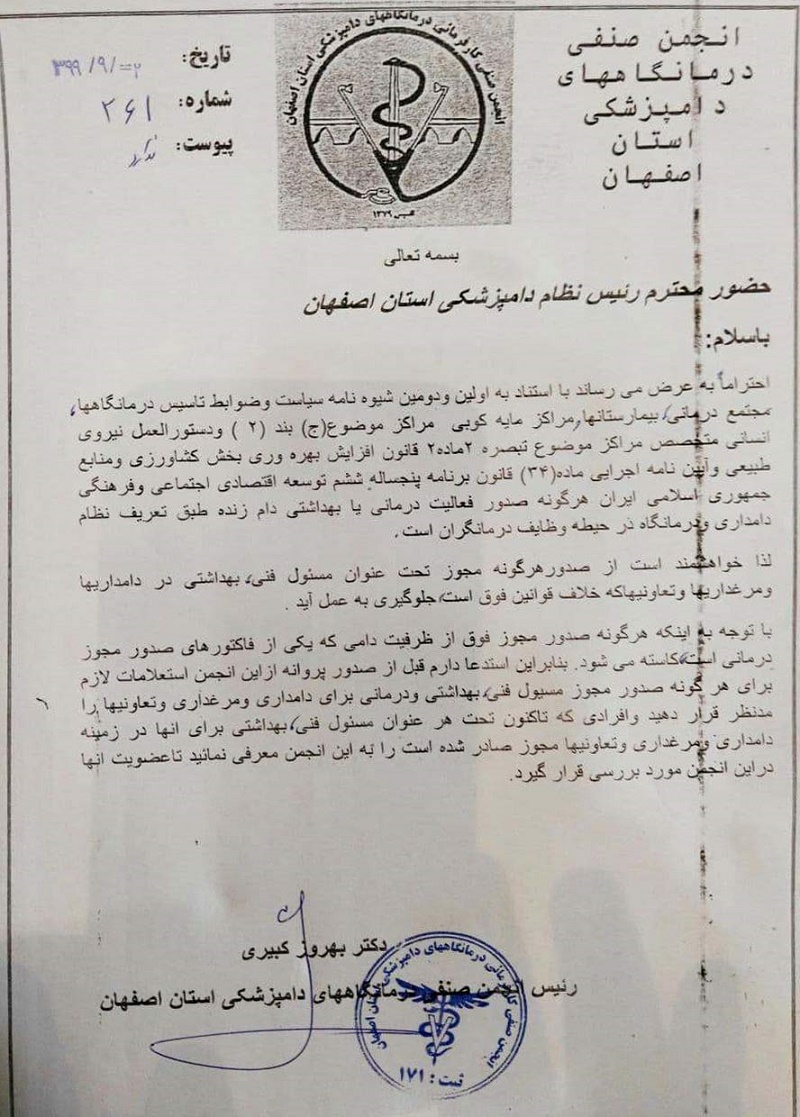 انجمن صنفی
درمانگاههای
دامپزشکی
استان
اصفهان
انجمن صنفی کارفرمائی درمانگاههای دامپزشکی استان اصفهان
تاسیس ۱۳۷۹
تاریخ:
شماره: ۲۶۱
پیوست: ندارد
بسمه تعالی
حضور محترم رئیس نظام دامپزشکی استان اصفهان
باسلام:
احتراماً به عرض می رساند با استناد به اولین ودومین شیوه نامه سیاست وضوابط تاسیس درمانگاهها،
مجتمع درمانی، بیمارستانها,مراکز مایه کوبی مراکز موضوع(ج) بند (۲ ) ودستورالعمل نیروی
انسانی متخصص مراکز موضوع تبصره ۲ماده۲ قانون افزایش بهره وری بخش کشاورزی ومنابع
طبیعی وآیین نامه اجرایی ماده(۳۴) قانون برنامه پنجساله ششم توسعه اقتصادی اجتماعی وفرهنگی
جمهوری اسلامی ایران هرگونه صدور فعالیت درمانی یا بهداشتی دام زنده طبق تعریف نظام
دامداری ودرمانگاه در حیطه وظایف درمانگران است.
لذا خواهشمند است از صدورهرگونه مجوز تحت عنوان مسئول فنی، بهداشتی در دامداریها
ومرغداریها وتعاونیهاکه خلاف قوانین فوق است،جلوگیری به عمل آید .
با توجه به اینکه هرگونه صدور مجوز فوق از ظرفیت دامی که یکی از فاکتورهای صدور مجوز
درمانی است،کاسته می شود. بنابراین استدعا دارم قبل از صدور پروانه ازاین انجمن استعلامات لازم
برای هر گونه صدور مجوز مسیول فنی، بهداشتی ودرمانی برای دامداری ومرغداری وتعاونیها را
مدنظر قرار دهید وافرادی که تاکنون تحت هر عنوان مسئول فنی،بهداشتی برای انها در زمینه
دامداری ومرغداری وتعاونیها مجوز صادر شده است را به این انجمن معرفی نمائید تاعضویت انها
دراین انجمن مورد بررسی قرار گیرد.
دکتر بهروز کبیری
رئیس انجمن صنفی درمانگاههای دامپزشکی استان اصفهان
انجمن صنفی کارفرمائی درمانگاههای دامپزشکی استان اصفهان
ثبت : ۱۷۱